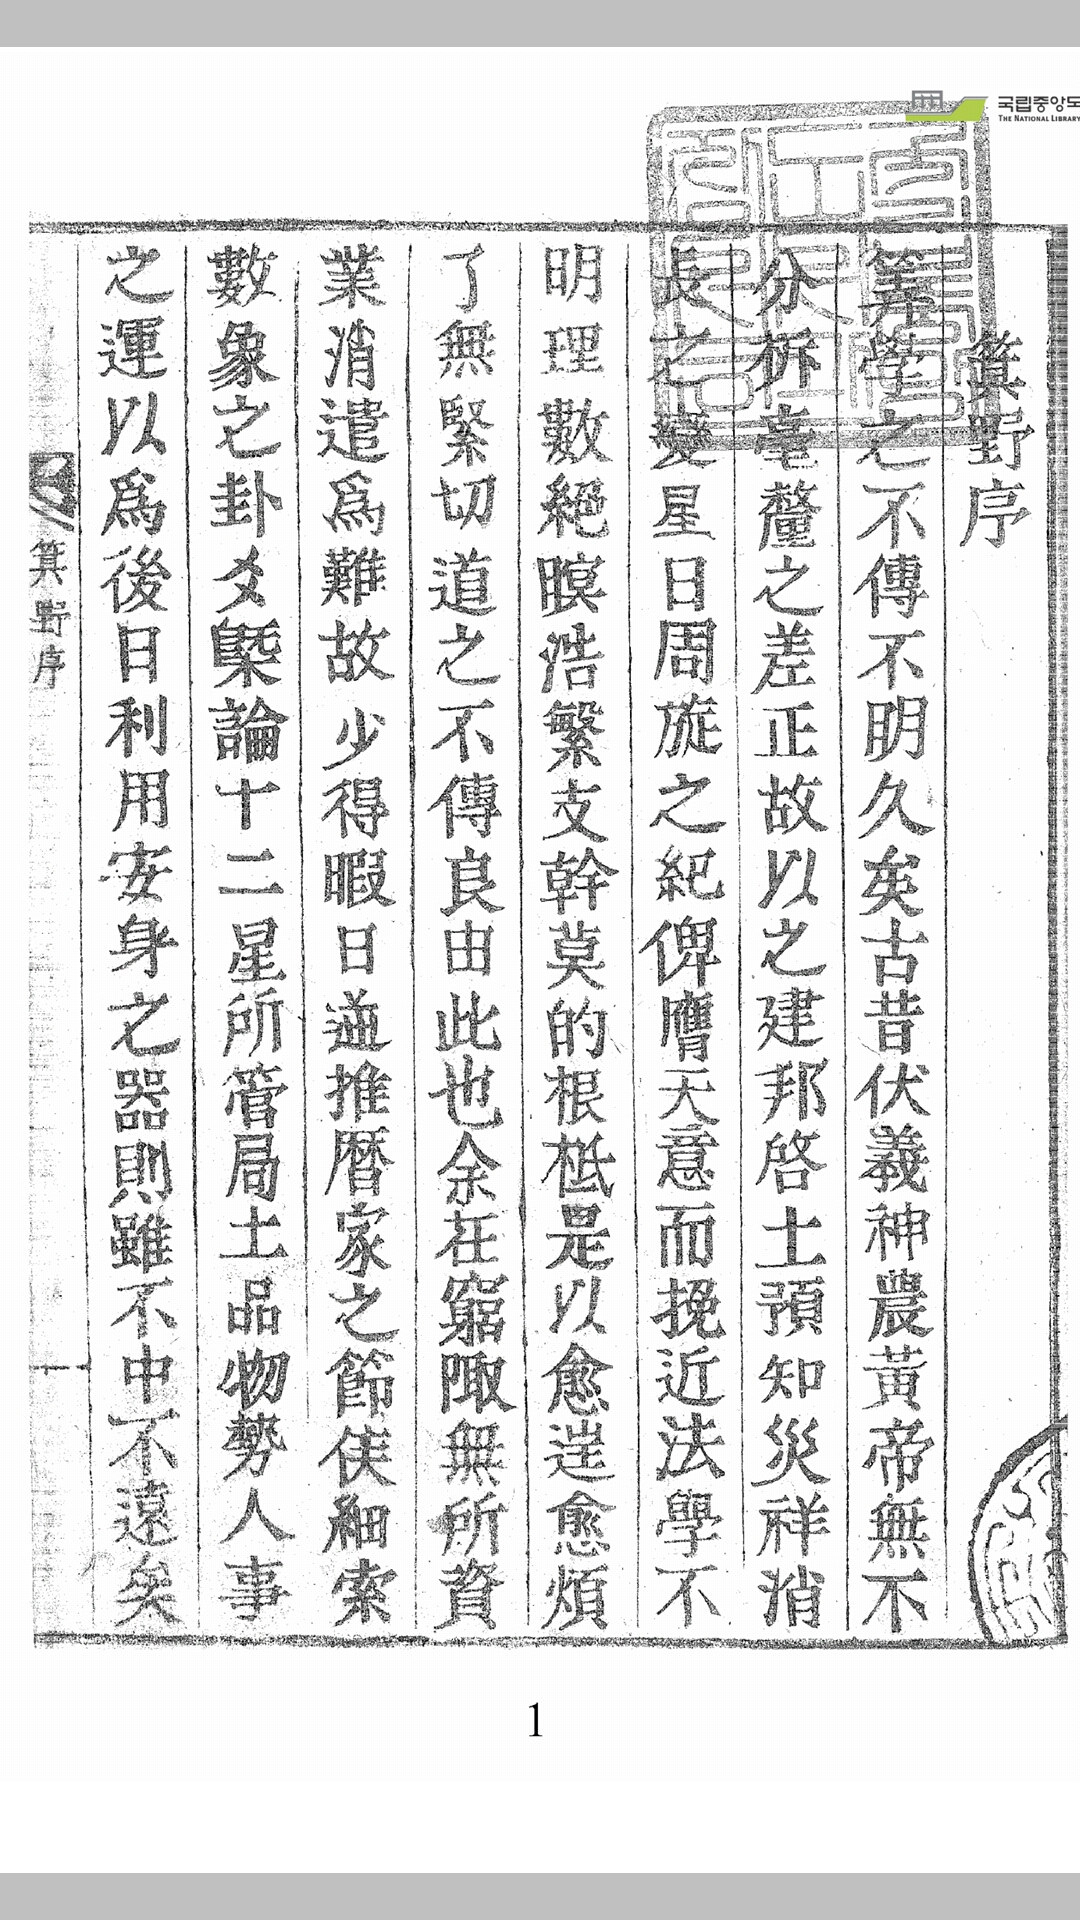 국립중앙도
THE NATIONAL LIBRARY
箕野序
筭學之不傳不明久矣古昔伏羲神農黃帝無不
分析毫釐之差正故以之建邦啓土預知災祥消
長之變星日周旋之紀俾膺天意而挽近法學不
明理數絕暝浩繁支幹莫的根柢是以愈迬愈煩
了無緊切道之不傳良由此也余在窮陬無所資
業消遣爲難故少得暇日遒推曆家之節侯細索
數象之卦爻槩論十二星所管局土品物勢人事
之運以爲後日利用安身之器則雖不中不遠矣
箕野序
1